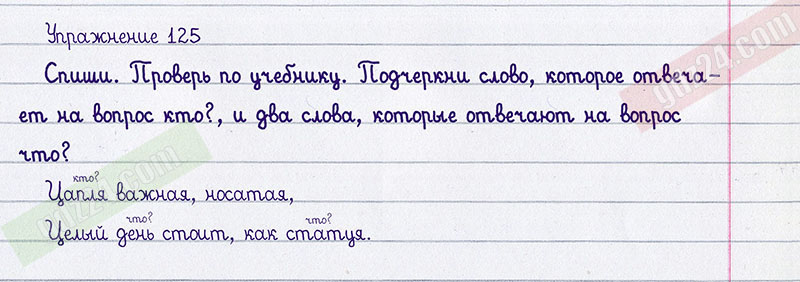 Упражнение 125
Спиши. Проверь по учебнику. Подчеркни слово, которое отвеча-
ет на вопрос кто?, и два слова, которые отвечают на вопрос
что?
кто?
Цапля важная, носатая,
что? что?
Целый день стоит, как статуя.
gdz24.com
gdz24.com